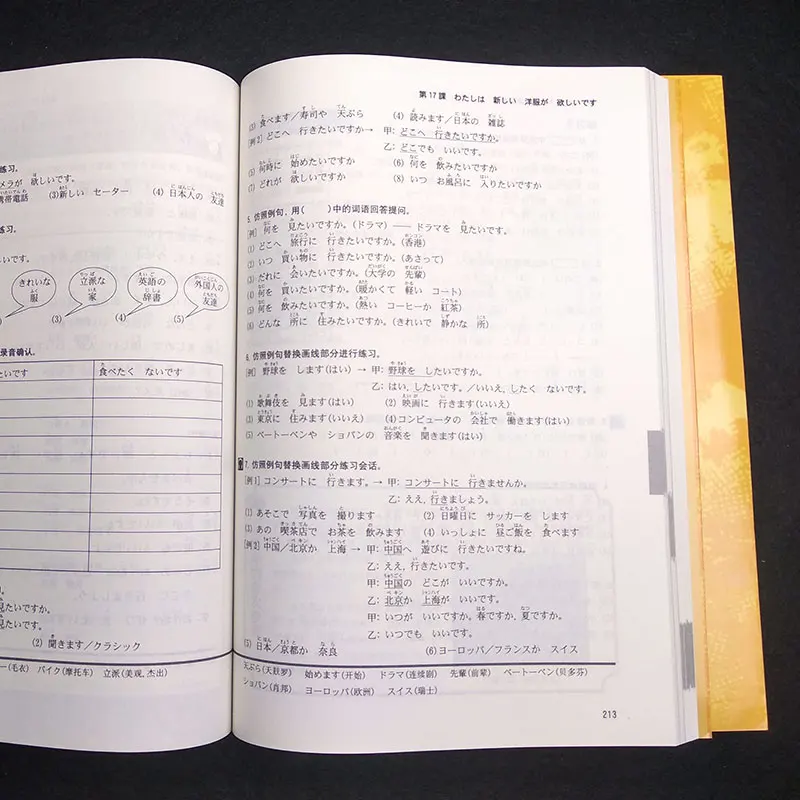 练习。
メラが 欲しいです。
携帯電話 (3)新しい セーター (4) 日本人の 友達
练习。
いです。
きれいな 服
立派な 家
英語の 辞書
外国人の 友達
(3) (4) (5)
录音确认。
たいです 食べたく ないです
見たいですか。
見たいです。
(2) 聞きます/クラシック
ー(毛衣) バイク(摩托车) 立派(美观,杰出)
第17課 わたしは 新しい 洋服が 欲しいです
(3) 食べます/寿司や 天ぷら (4) 読みます/日本の 雑誌
[例2] どこへ 行きたいですか→ 甲: どこへ 行きたいですか。
乙: どこでも いいです。
(5) 何時に 始めたいですか (6) 何を 飲みたいですか
(7) どれが 欲しいですか (8) いつ お風呂に 入りたいですか
5. 仿照例句,用( )中的词语回答提问。
[例] 何を 見たいですか。(ドラマ)—— ドラマを 見たいです。
(1) どこへ 旅行に 行きたいですか。(香港)
(2) いつ 買い物に 行きたいですか。(あさって)
(3) だれに 会いたいですか。(大学の 先輩)
(4) 何を 買いたいですか。(暖かくて 軽い コート)
(5) 何を 飲みたいですか。(熱い コーヒーか 紅茶)
(6) どんな 所に 住みたいですか。(きれいで 静かな 所)
6. 仿照例句替换画线部分进行练习。
[例] 野球を します(はい) → 甲: 野球を したいですか。
乙: はい,したいです。/いいえ,したく ないです。
(1) 歌舞伎を 見ます(はい) (2) 映画に 行きます(いいえ)
(3) 東京に 住みます(いいえ) (4)コンピュータの 会社で 働きます(はい)
(5) ベートーベンや ショパンの 音楽を 聞きます(はい)
7. 仿照例句替换画线部分练习会话。
[例1] コンサートに 行きます。→ 甲: コンサートに 行きませんか。
乙: ええ,行きましょう。
(1) あそこで 写真を 撮ります (2) 日曜日に サッカーを します
(3) あの 喫茶店で お茶を 飲みます (4) いっしょに 昼ご飯を 食べます
[例2] 中国/北京か 上海 → 甲: 中国へ 遊びに 行きたいですね。
乙: ええ,行きたいです。
甲: 中国の どこが いいですか。
乙: 北京か 上海が いいです。
甲: いつが いいですか。春ですか,夏ですか。
乙: いつでも いいです。
(5) 日本/京都か 奈良 (6)ヨーロッパ/フランスか スイス
天ぷら(天麸罗) 始めます(开始) ドラマ(连续剧) 先輩(前辈) ベートーベン(贝多芬)
ショパン(肖邦) ヨーロッパ(欧洲) スイス(瑞士)
213